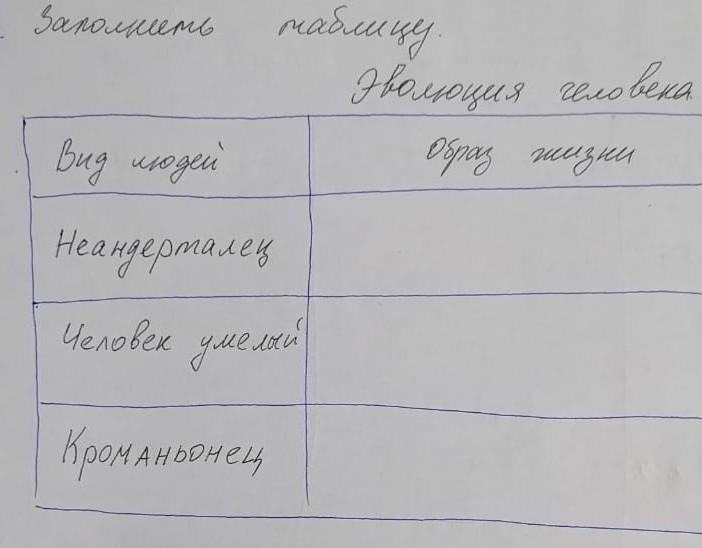 Заполнить таблицу.
Эволюция человека
Вид людей
Образ жизни
Неандерталец
Человек умелый
Кроманьонец